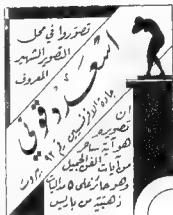 تصوّروا في محل
التصوير الشهير
المعروف
اسعد دقوني
جادة الافرنسيين رقم ٩٢
ان
تصويره
هو آية ساحرة
من آيات الفن الجميل
وهو حائز على مداليات
ذهبية من باريس